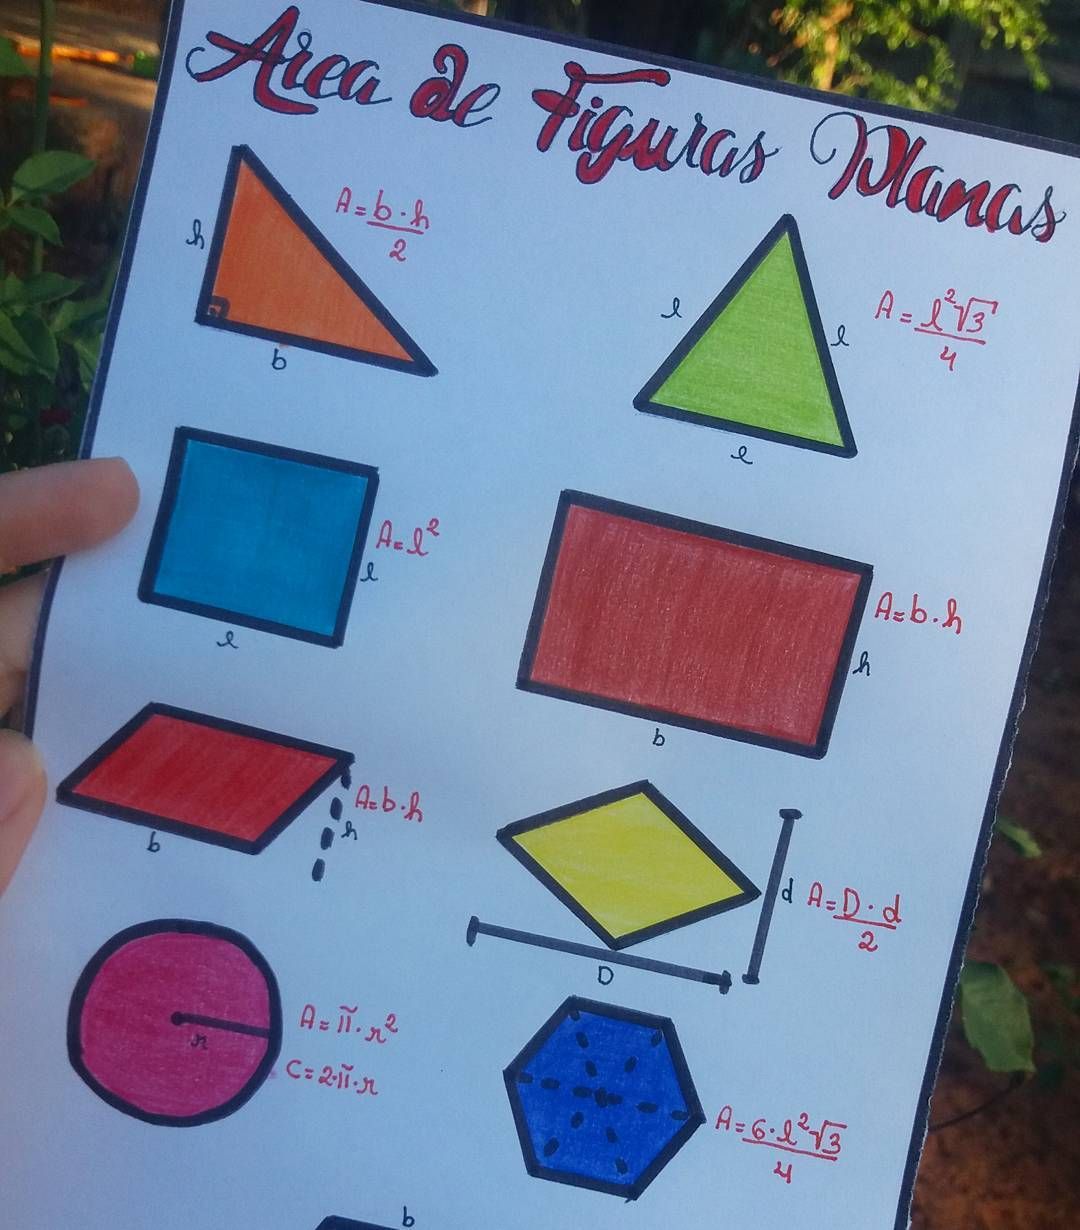 Area de Figuras Planas
h
A = b · h
2
b
l
l
A = l²√3
4
l
A = l²
l
l
A = b · h
h
b
A = b · h
h
b
d
A = D · d
2
D
r
A = π · r²
C = 2 · π · r
A = 6 · l²√3
4
b